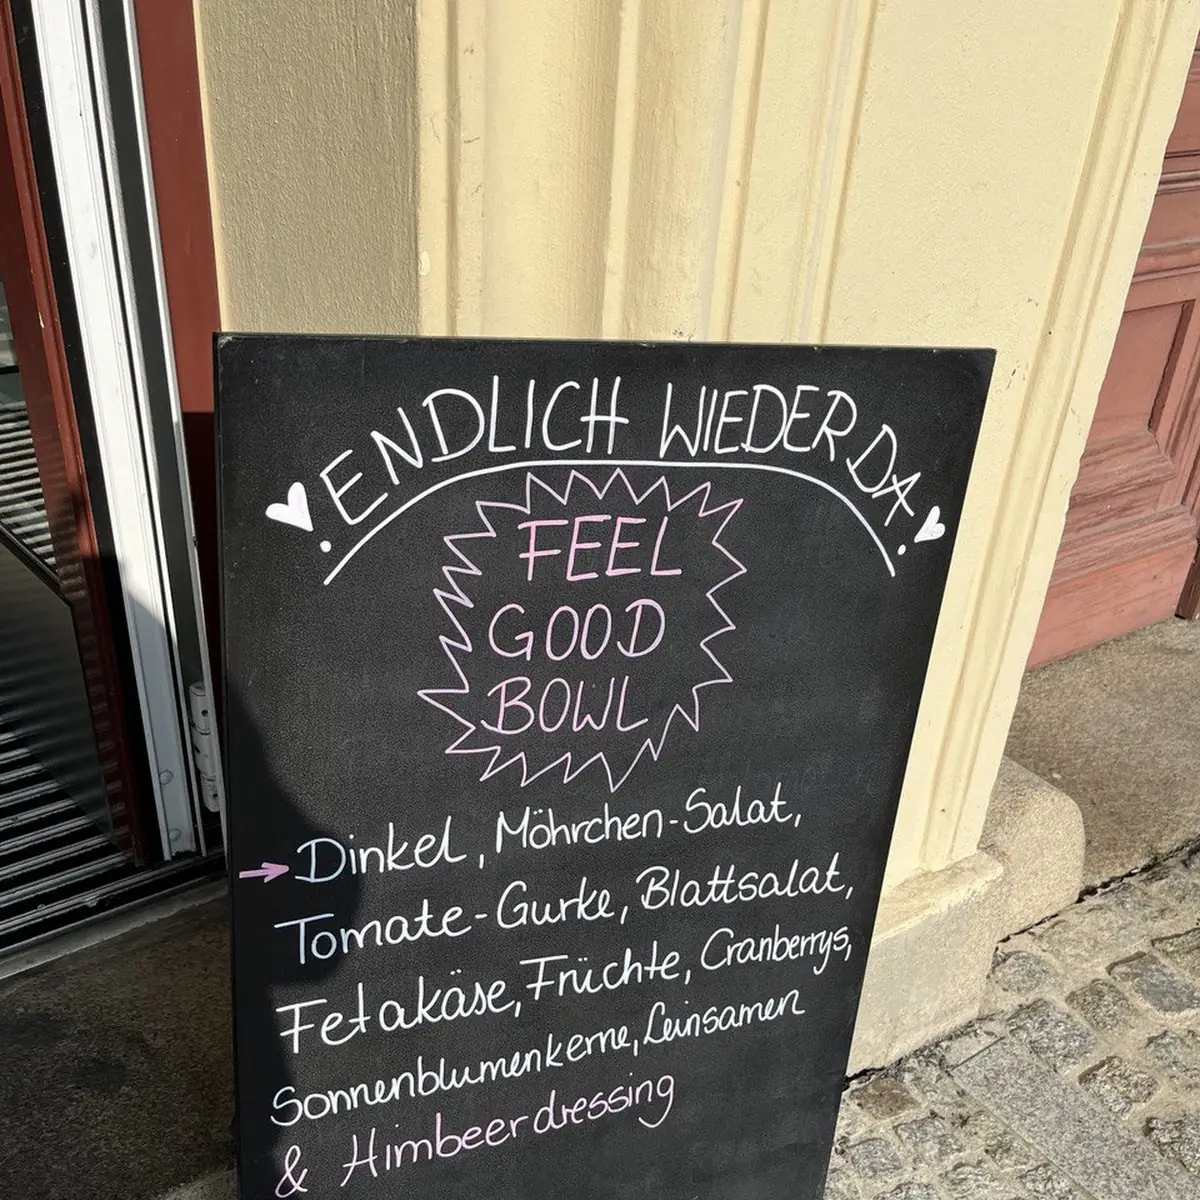 ENDLICH WIEDER DA!
FEEL
GOOD
BOWL
→ Dinkel, Möhrchen-Salat,
Tomate-Gurke, Blattsalat,
Fetakäse, Früchte, Cranberrys,
Sonnenblumenkerne, Leinsamen
& Himbeerdressing